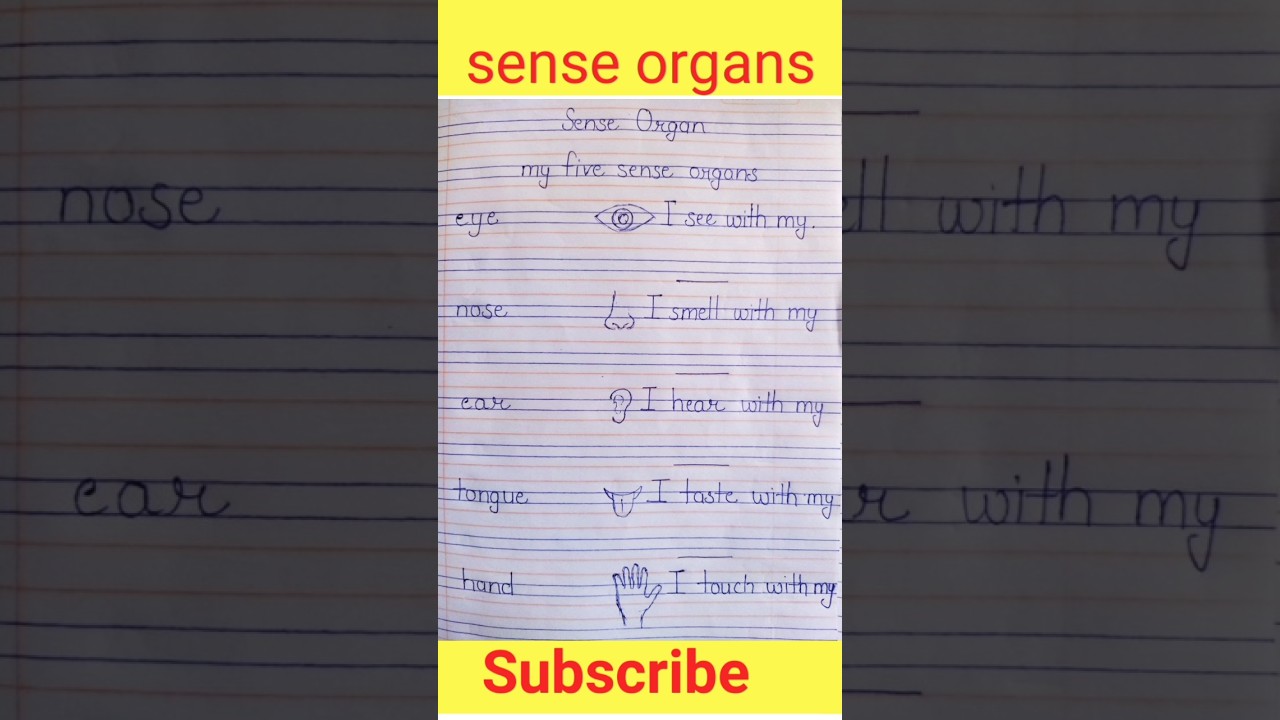 sense organs
Sense Organ
my five sense organs
eye I see with my.
nose I smell with my
ear I hear with my
tongue I taste with my
hand I touch with my
Subscribe
nose ell with my
ear r with my